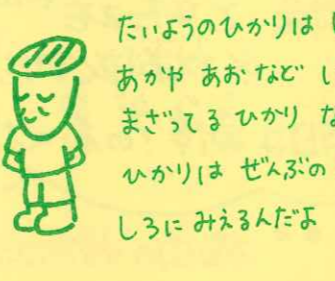 たいようのひかりは
あかや あお など
まざってる ひかり
ひかりは ぜんぶの
しろに みえるんだよ